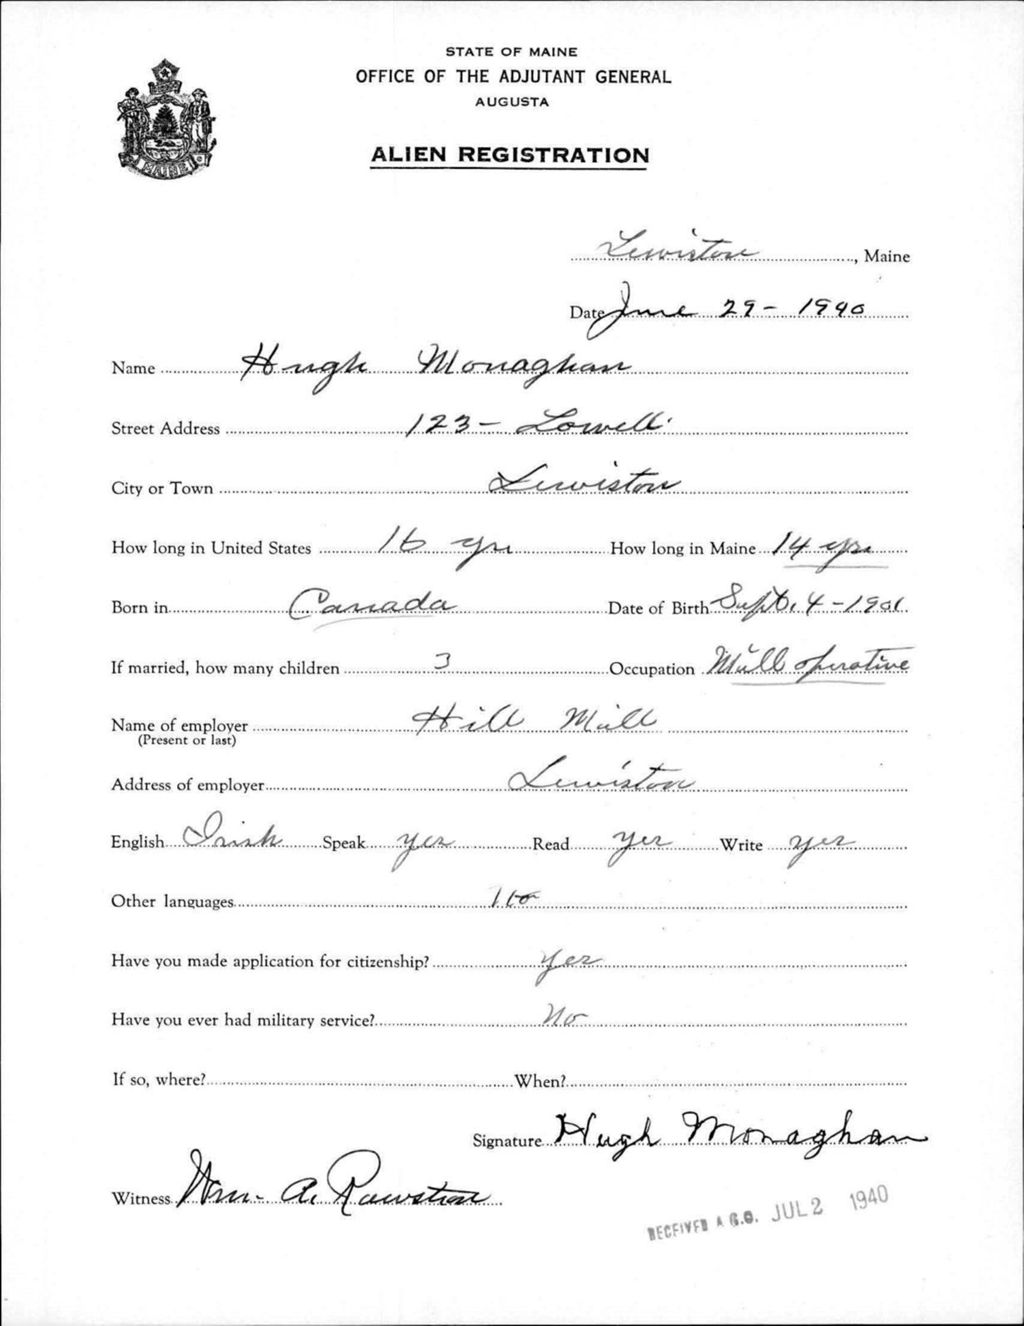 STATE OF MAINE
OFFICE OF THE ADJUTANT GENERAL
AUGUSTA
ALIEN REGISTRATION
MAINE
Lewiston, Maine
Date June 29 - 1940
Name Hugh Monaghan
Street Address 123 - Lowell
City or Town Lewiston
How long in United States 16 yrs How long in Maine 14 yrs
Born in Canada Date of Birth Sept. 4 - 1901
If married, how many children 3 Occupation Mill operative
Name of employer Hill Mill
(Present or last)
Address of employer Lewiston
English Irish Speak yes Read yes Write yes
Other languages no
Have you made application for citizenship? Yes
Have you ever had military service? No
If so, where? When?
Signature Hugh Monaghan
Witness Wm. A. Rawstron
RECEIVED A.G.O. JUL 2 1940